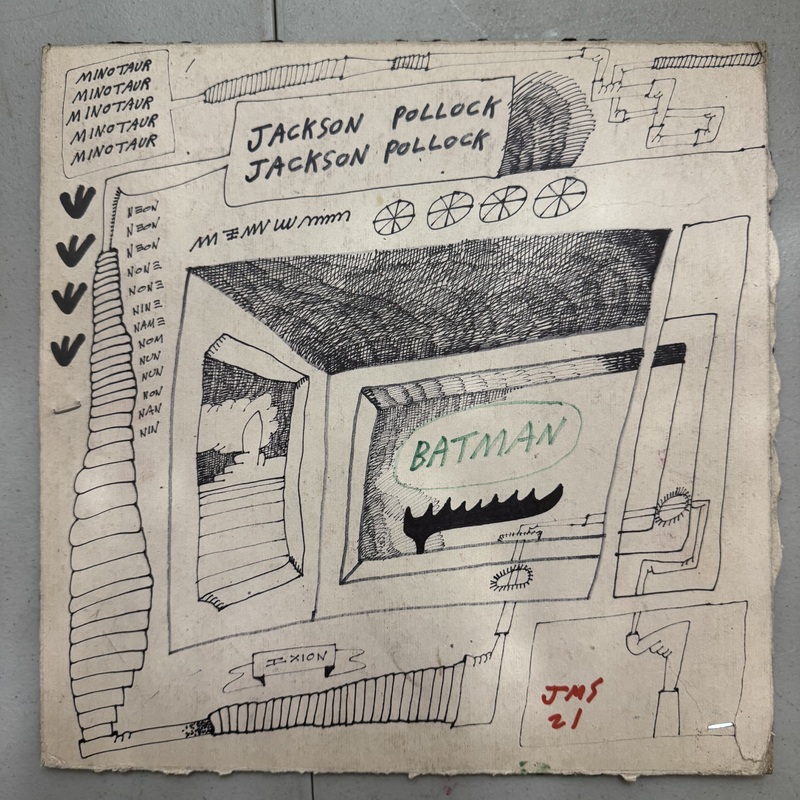 MINOTAUR
MINOTAUR
MINOTAUR
MINOTAUR
MINOTAUR
JACKSON POLLOCK
JACKSON POLLOCK
NEON
NEON
NEON
NONE
NONE
NINE
NAME
NOM
NUN
NUN
NON
NAN
NIN
BATMAN
IXION
JMS
21